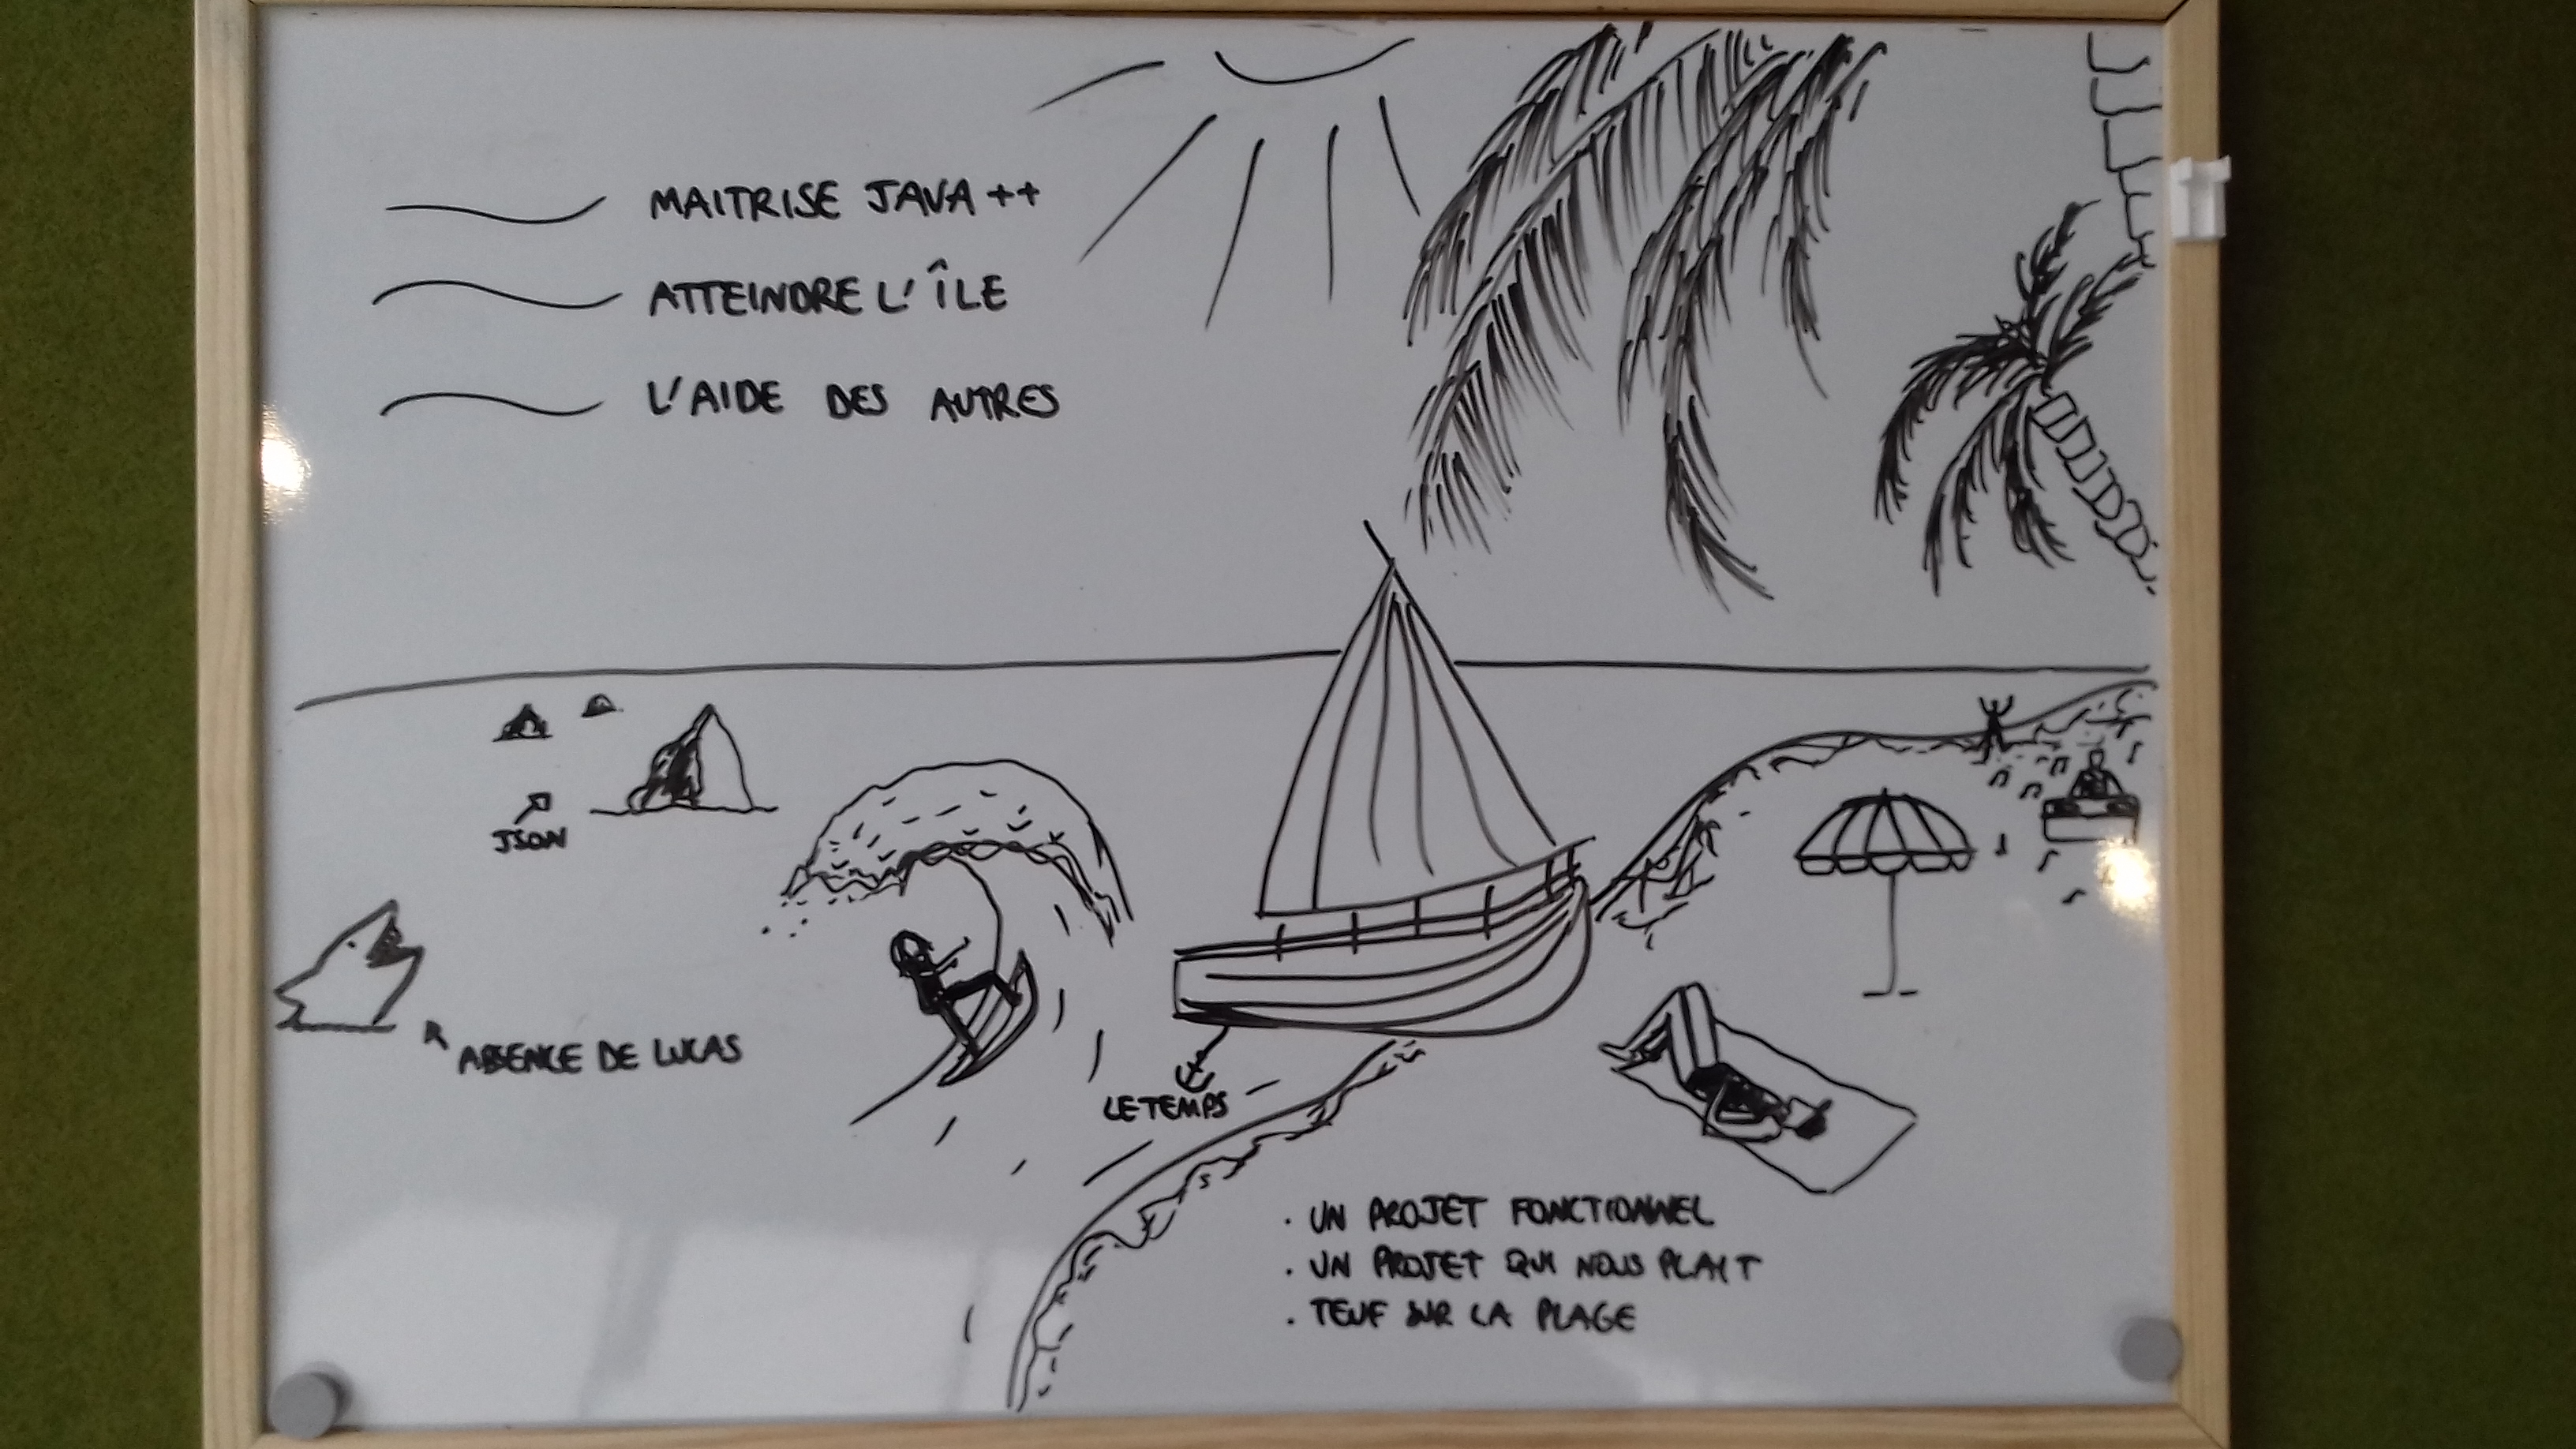 MAITRISE JAVA ++
ATTEINDRE L'ÎLE
L'AIDE DES AUTRES
JSON
ABSENCE DE LUCAS
LE TEMPS
. UN PROJET FONCTIONNEL
. UN PROJET QUI NOUS PLAIT
. TEUF SUR LA PLAGE